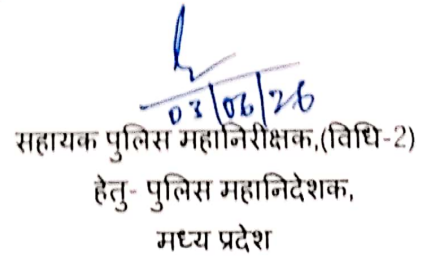 03/06/26
सहायक पुलिस महानिरीक्षक,(विधि-2)
हेतु- पुलिस महानिदेशक,
मध्य प्रदेश